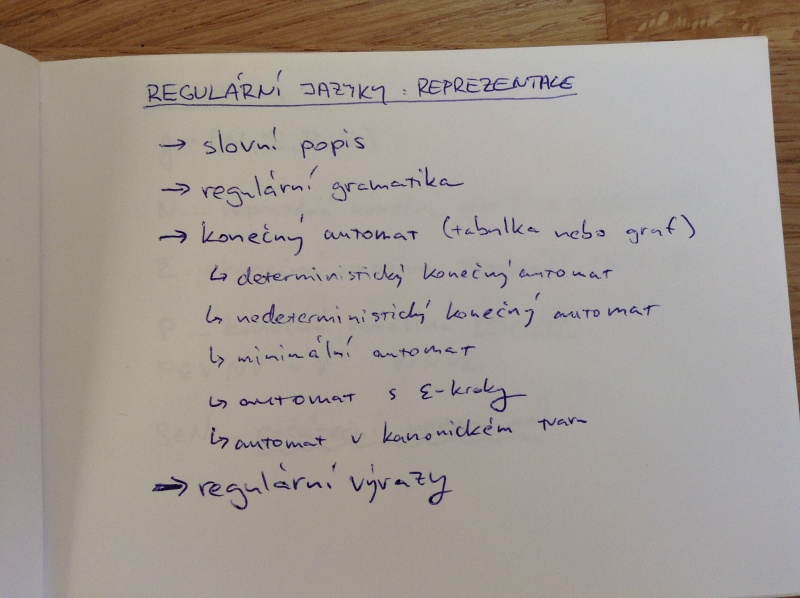 REGULÁRNÍ JAZYKY : REPREZENTACE
→ slovní popis
→ regulární gramatika
→ konečný automat (tabulka nebo graf)
↳ deterministický konečný automat
↳ nedeterministický konečný automat
↳ minimální automat
↳ automat s ε-kroky
↳ automat v kanonickém tvaru
→ regulární výrazy